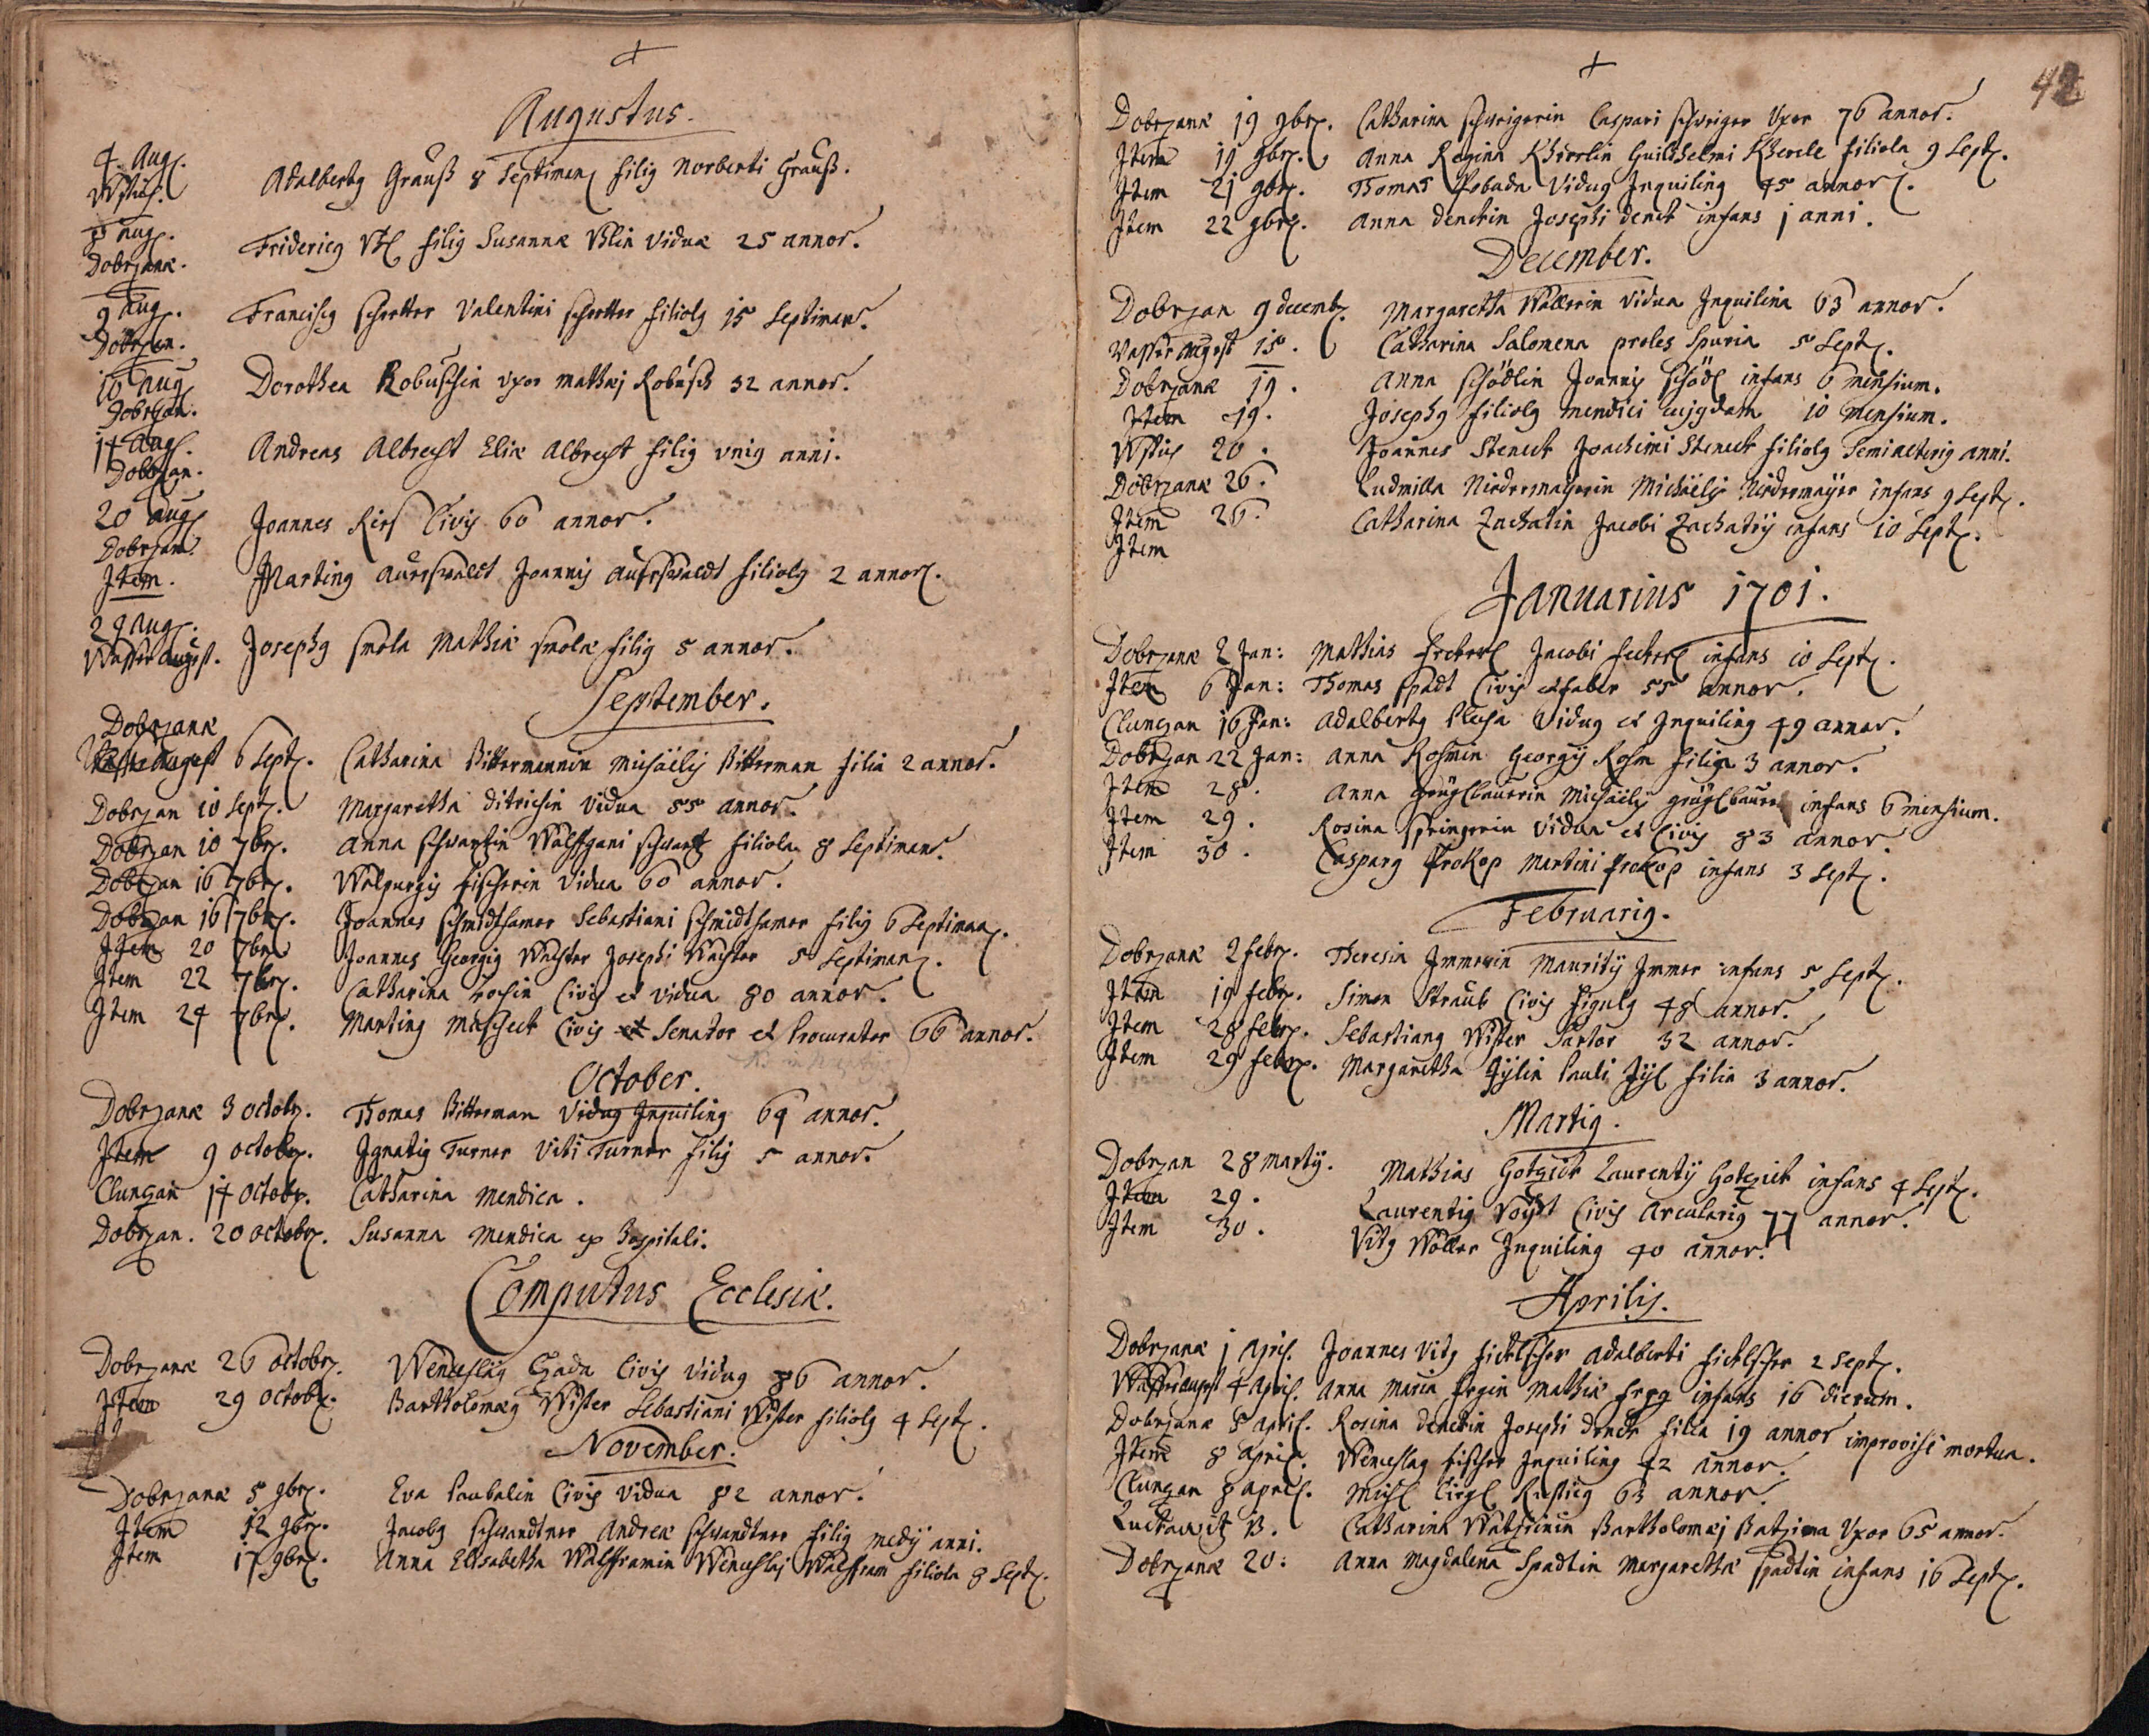 +
Augustus.
4. Aug.
Wstus.
Adalbertg Grauß 8 Septiman filig Norberti Grauß.
8 Aug.
Dobrzanæ.
Fridericg filig Susannæ Viduæ 25 annor.
9 Aug.
Dobrzan.
Franciscg Schretter Valentini Schretter filiolg 15 Septiman.
10 Aug
Dobrzan.
Dorothea Robuschin Uxor Mathæj Robusch 32 annor.
14 Aug.
Dobrzan.
Andreas Albrecht Eliæ Albrecht filig vnig anni.
20 Aug
Dobrzan.
Joannes Civis 60 annor.
Item.
Marting Joannis filiolg 2 annor.
29 Aug.
Josephg Smola Mathiæ Smolæ filig 5 annor.
September.
Dobrzanæ
6 Sept. Catharina Bittermannin Michaëlis Bitterman filia 2 annor.
Dobrzan 10 Sept. Margaretha Ditrichin Vidua 55 annor.
Dobrzan 10 7br. Anna Schwartzin Wolffgani Schwartz filiola 8 Septiman.
Dobrzan 16 7br. Walpurgis Fischerin Vidua 60 annor.
Dobrzan 16 7br. Joannes Schmidthamer Sebastiani Schmidthamer filig 6 Septiman.
Item 20 7br Joannes Georgig Wachter Josephi Wachter 5 Septiman.
Item 22 7br. Catharina Civis et Vidua 80 annor.
Item 24 7br. Marting Muscheck Civis et Senator et Procurator 66 annor.
October.
Dobrzanæ 3 Octobr. Thomas Bitterman Vidug Inquiling 69 annor.
Item 9 Octobr. Ignatig Turner Viti Turner filig 5 annor.
Clunczan 14 Octobr. Catharina Mendica.
Dobrzan. 20 Octobr. Susanna Mendica ex Hospitali.
Computus Ecclesiæ.
Dobrzanæ 26 Octobr. Wenceslag Czada Civis Vidug 86 annor.
Item 29 Octobr. Bartholomæg Wister Sebastiani Wister filiolg 4 Sept.
November.
Dobrzanæ 5 9br. Eva Paubalin Civis Vidua 82 annor.
Item 12 9br. Jacobg Schwandtner Andreæ Schwandtner filig medij anni.
Item 17 9br. Anna Elisabetha Wolfframin Wenceslaj Wolffram filiola 8 Sept.
+
42
Dobrzanæ 19 9br. Catharina Schwigerin Caspari Schwiger Uxor 76 annor.
Item 19 9br. Anna Regina Guilhelmi filiola 9 Sept.
Item 21 9br. Thomas Vidug Inquiling 45 annor.
Item 22 9br. Anna Denckin Josephi Denck infans 1 anni.
December.
Dobrzan 9 Decemb. Margaretha Wallerin Vidua Inquilina 63 annor.
Wasseraugest 15. Catharina Salomena proles Spuria 5 Sept.
Dobrzanæ 19. Anna Schödlin Joannis Schödl infans 6 mensium.
Item 19. Josephg filiolg mendici cujgdam 10 mensium.
Wstus 20. Joannes Steneck Joachimi Steneck filiolg Semialterig anni.
Dobrzanæ 26. Ludmilla Nidermayerin Michaëlis Nidermayer infans 9 Sept.
Item 26. Catharina Zachatin Jacobi infans 10 Sept.
Item
Januarius 1701.
Dobrzanæ 2 Jan: Mathias Jacobi infans 10 Sept.
Item 6 Jan: Thomas Spadt Civis et faber 55 annor.
Clunczan 16 Jan: Adalbertg Vidug et Inquiling 49 annor.
Dobrzan 22 Jan: Anna Rohmin Georgij Rohm filia 3 annor.
Item 28. Anna Michaëlis infans 6 mensium.
Item 29. Rosina Springerin Vidua et Civis 83 annor.
Item 30. Casparg Prokop Martini Prokop infans 3 Sept.
Februarig.
Dobrzanæ 2 Febr. Theresia Immerin Mauritij Immer infans 5 Sept.
Item 19 Febr. Simon Straub Civis figulg 48 annor.
Item 28 Febr. Sebastiang Wister Sartor 32 annor.
Item 29 Febr. Margaretha Pauli filia 3 annor.
Martig.
Dobrzan 28 Martij. Mathias Gotzick Laurentij Gotzick infans 4 Sept.
Item 29. Laurentig Voydt Civis Arcularig 77 annor.
Item 30. Vitg Woller Inquiling 40 annor.
Aprilis.
Dobrzanæ 1 April. Joannes Vitg Fichtlscher Adalberti Fichtlscher 2 Sept.
Wasseraugest 4 April. Anna Maria Mathiæ infans 16 dierum.
Dobrzanæ 8 April. Rosina Denckin Josephi Denck filia 19 annor improvise mortua.
Item 8 April. Wenceslag Fischer Inquiling 42 annor.
Clunczan 8 April. Michl Rusticg 63 annor.
13. Catharina Watzinin Bartholomæj Uxor 65 annor.
Dobrzanæ 20: Anna Magdalena Spadtin Margarethæ Spadtin infans 16 Sept.